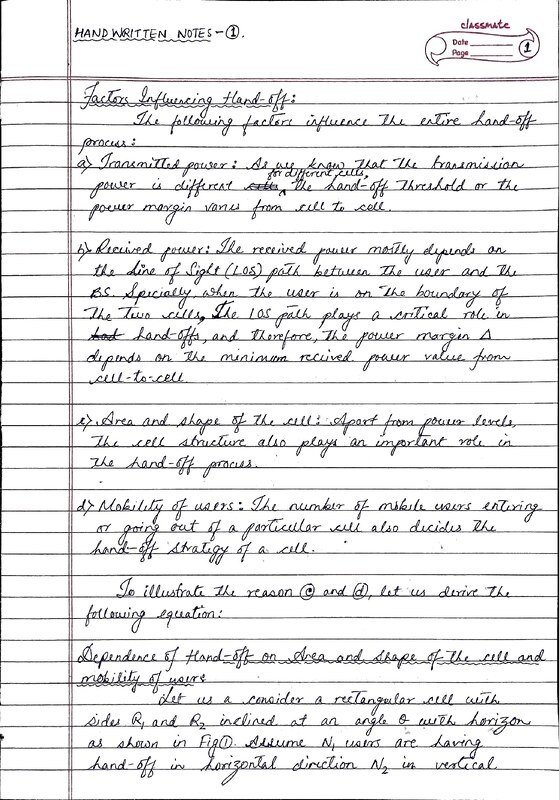 HANDWRITTEN NOTES-①.
classmate
Date
Page
1
Factors Influencing Hand-off:
The following factors influence the entire hand-off
process:
a) Transmitted power: As we know that the transmission
for different cells,
power is different cells, the hand-off threshold or the
power margin varies from cell to cell.
b) Recieved power: The received power mostly depends on
the Line of Sight (LOS) path between the user and the
BS. Specially, when the user is on the boundary of
the two cells, the LOS path plays a critical role in
hand-offs, and therefore, the power margin Δ
depends on the minimum recieved power value from
cell-to-cell.
c) Area and shape of the cell: Apart from power levels,
the cell structure also plays an important role in
the hand-off process.
d) Mobility of users: The number of mobile users entering
or going out of a particular cell also decides the
hand-off strategy of a cell.
To illustrate the reason ⓒ and ⓓ, let us derive the
following equation:
Dependence of Hand-off on Area and Shape of the cell and
mobility of users
Let us a consider a rectangular cell with
sides R₁ and R₂ inclined at an angle θ with horizon
as shown in Fig①. Assume N₁ users are having
hand-off in horizontal direction N₂ in vertical